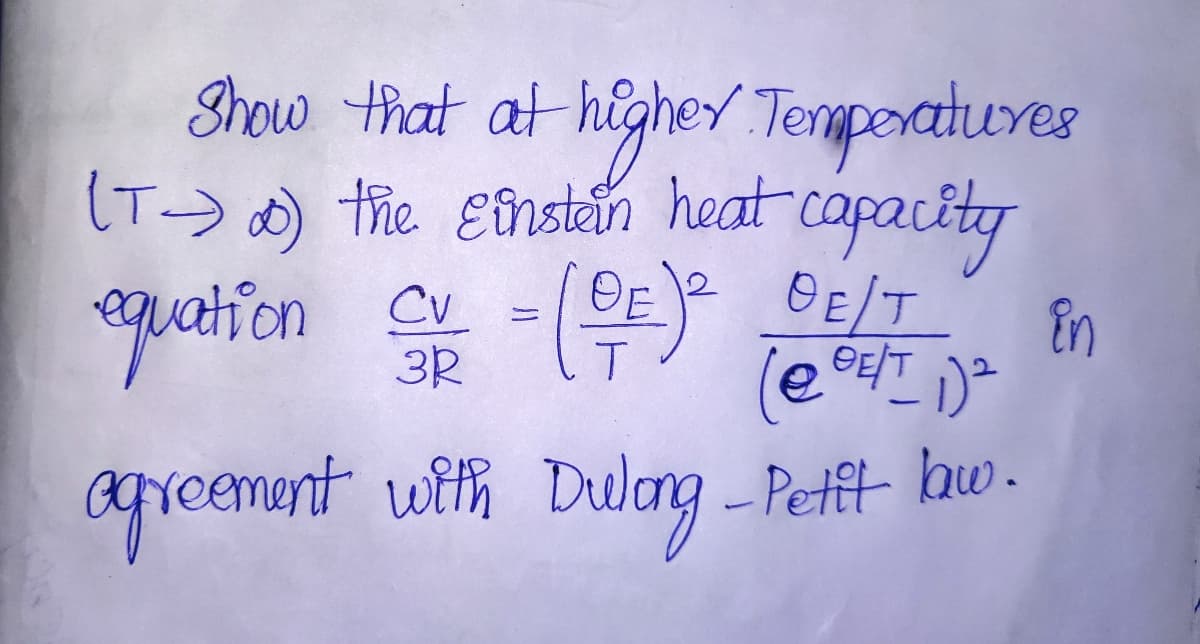 Show that at higher Temperatures
(T→∞) the Einstein heat capacity
equation Cv/3R = (ΘE/T)² ΘE/T/(e^ΘE/T - 1)² in
agreement with Dulong - Petit law.